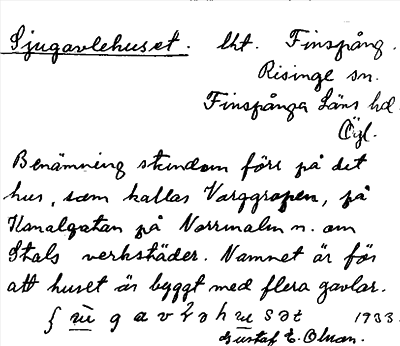 Sjugavlehuset. lht. Finspång.
Risinge sn.
Finspånga Läns hd.
Ögl.
Benämning stundom förr på det
hus, som kallas Varggropen, på
Kanalgatan på Norrmalm n. om
Stals verkstäder. Namnet är för
att huset är byggt med flera gavlar.
1933
Gustaf E. Olsson.